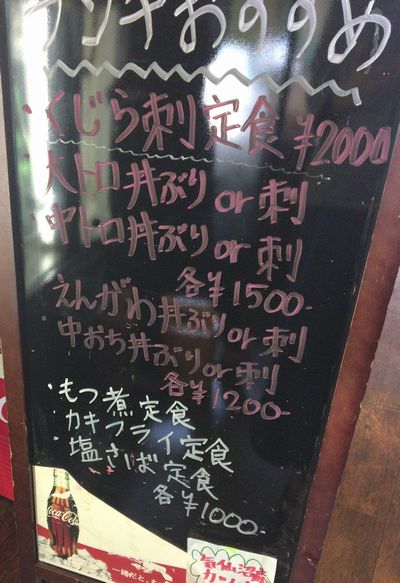 ランチおすすめ
・くじら刺定食 ¥2000
・大トロ丼ぶり or 刺
・中トロ丼ぶり or 刺
各¥1500-
えんがわ丼ぶり or 刺
中おち丼ぶり or 刺
各¥1200-
・もつ煮定食
・カキフライ定食
・塩さば定食
各¥1000-
Coca-Cola
一緒だと
気仙沼